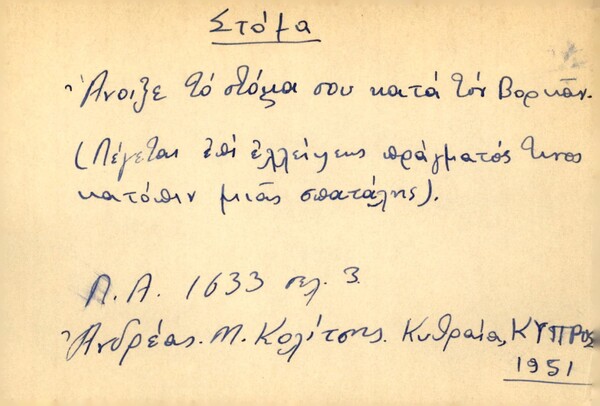 Στόμα
Ἄνοιξε τό στόμα σου κατά τόν Βορκᾶν.
(Λέγεται ἐπί ἐλλείψεως πράγματός τινος
κατόπιν μιᾶς σπατάλης).
Λ.Α. 1633 σελ. 3.
Ἀνδρέας. Μ. Κολίτσης. Κυθραία, ΚΥΠΡΟΣ
1951